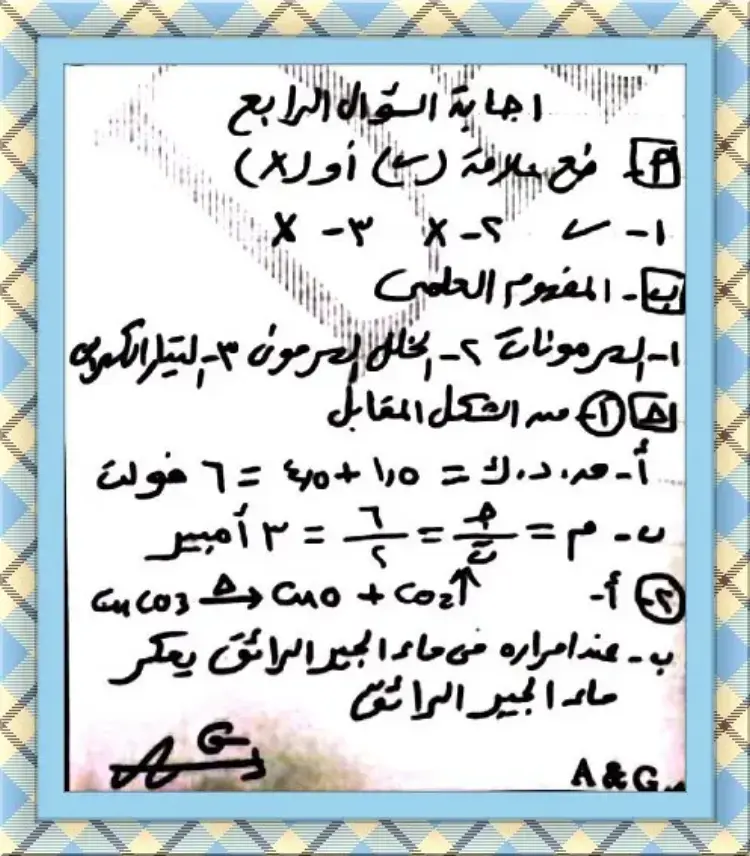 اجابة السؤال الرابع
أ- ضع علامة (✓) أو (X)
١- ✓ ٢- X ٣- X
ب- المفهوم العلمى
١- الهرمونات ٢- الخلل الهرمونى ٣- التيار الكهربى
ج ①- من الشكل المقابل
أ- ق.د.ك = ١,٥ + ٤,٥ = ٦ فولت
ب- م = جـ/ت = ٦/٢ = ٣ أمبير
②- أ- CuCO3 →Δ CuO + CO2↑
ب- عند امراره فى ماء الجير الرائق يعكر
ماء الجير الرائق
A G
A & G